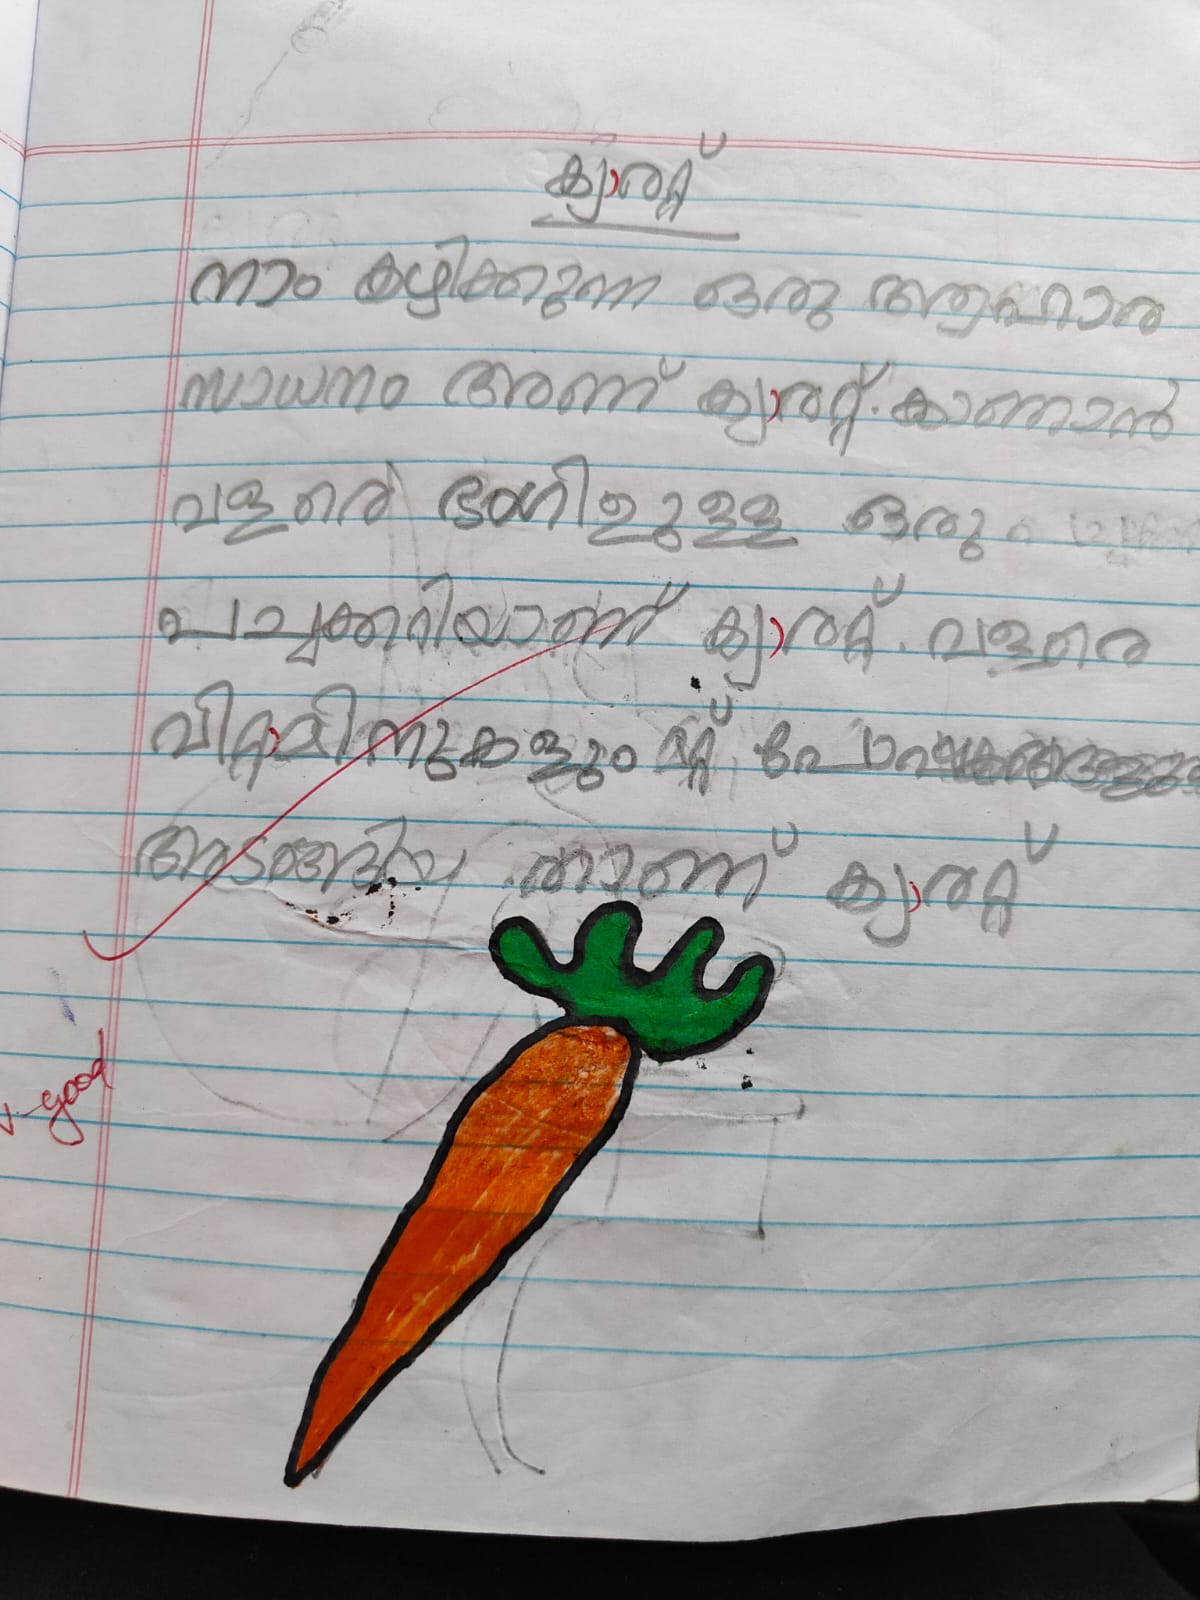 ക്യാരറ്റ്
നാം കഴിക്കുന്ന ഒരു ആഹാര
സാധനം അണ് ക്യാരറ്റ്. കാണാൻ
വളരെ ഭംഗിഉുള്ള ഒരു
പച്ചക്കറിയാണ് ക്യാരറ്റ്. വളരെ
വിറ്റാമിനുകളും മറ്റ്
അടങ്ങിയ താണ് ക്യാരറ്റ്
v-good